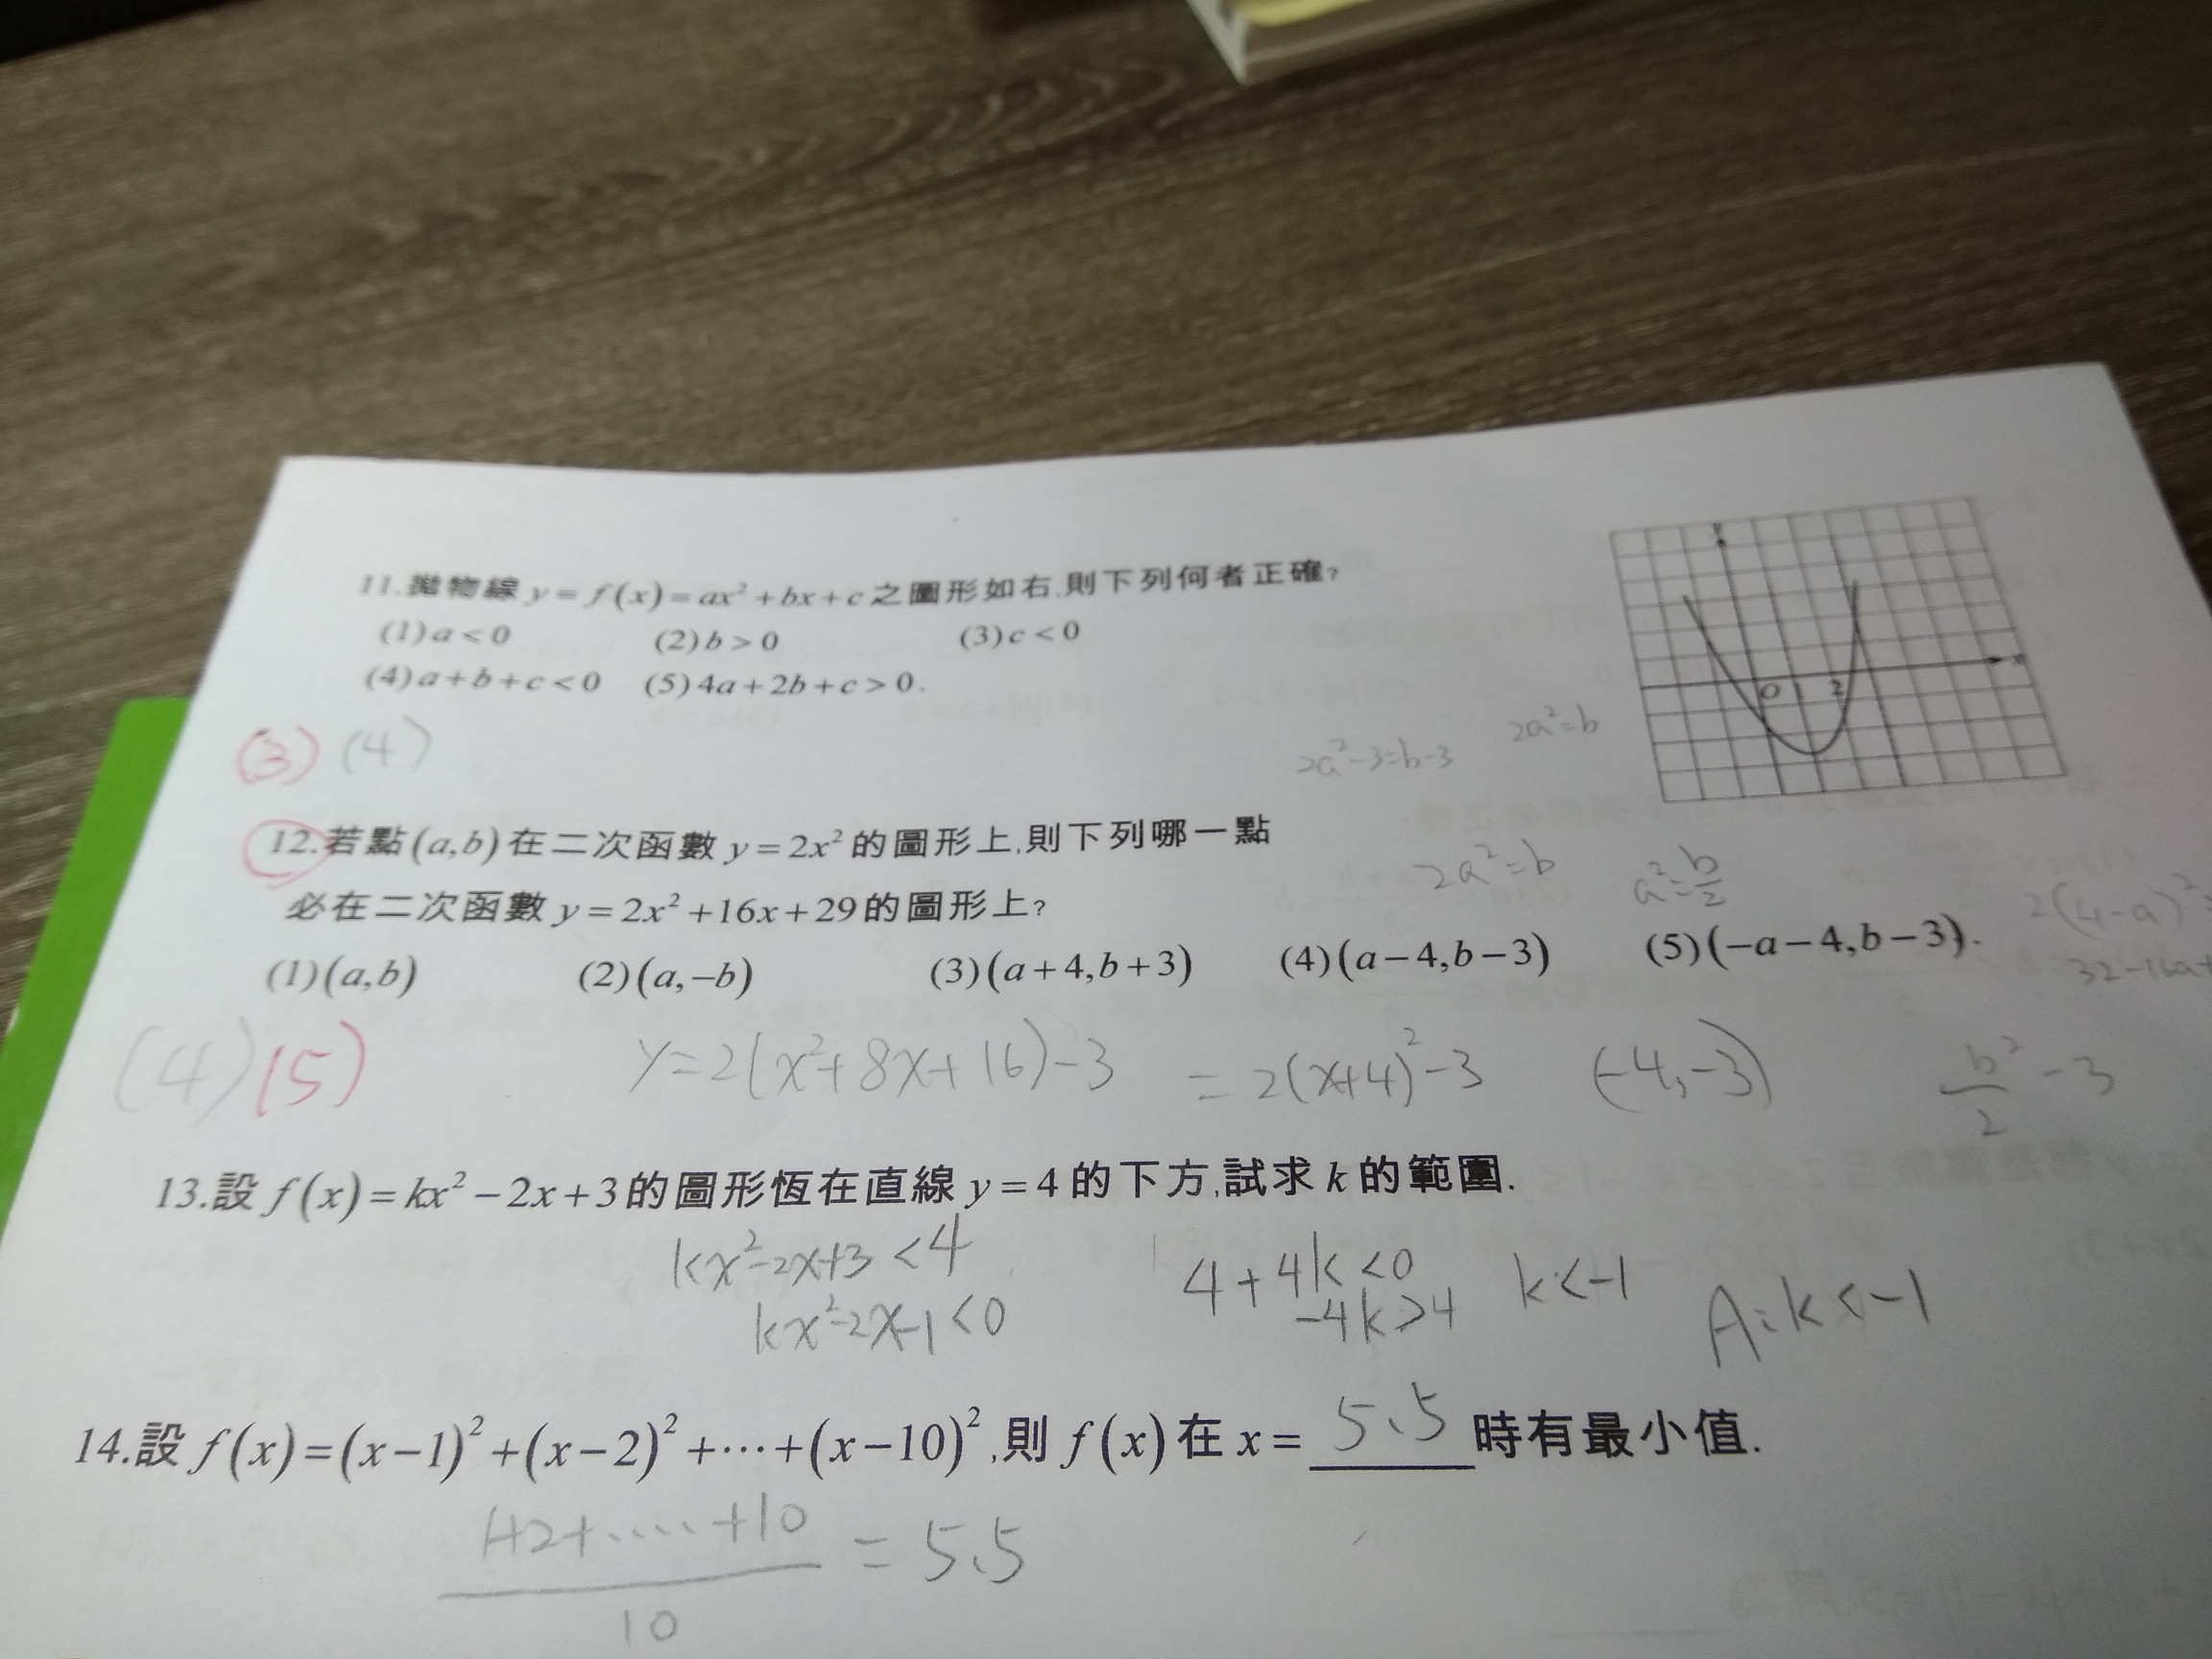 11.拋物線 y = f(x) = ax² + bx + c 之圖形如右,則下列何者正確?
(1) a < 0 (2) b > 0 (3) c < 0
(4) a + b + c < 0 (5) 4a + 2b + c > 0.
y
x
O 1 2
(3) (4)
2a²-3=b-3 2a²=b
12.若點(a,b)在二次函數 y = 2x² 的圖形上,則下列哪一點
2a²=b a²=b/2
必在二次函數 y = 2x² + 16x + 29 的圖形上?
2(4-a)²
(1)(a,b) (2)(a,-b) (3)(a+4,b+3) (4)(a-4,b-3) (5)(-a-4,b-3).
32-16a+
(4)(5) y=2(x²+8x+16)-3 =2(x+4)²-3 (-4,-3) b²/2 -3
13.設 f(x) = kx² - 2x + 3 的圖形恆在直線 y = 4 的下方,試求 k 的範圍.
kx²-2x+3<4 4+4k<0 k<-1 A:k<-1
kx²-2x-1<0 -4k>4
14.設 f(x) = (x-1)² + (x-2)² + ⋯ + (x-10)² ,則 f(x) 在 x = 5.5 時有最小值.
1+2+.....+10 = 5.5
10